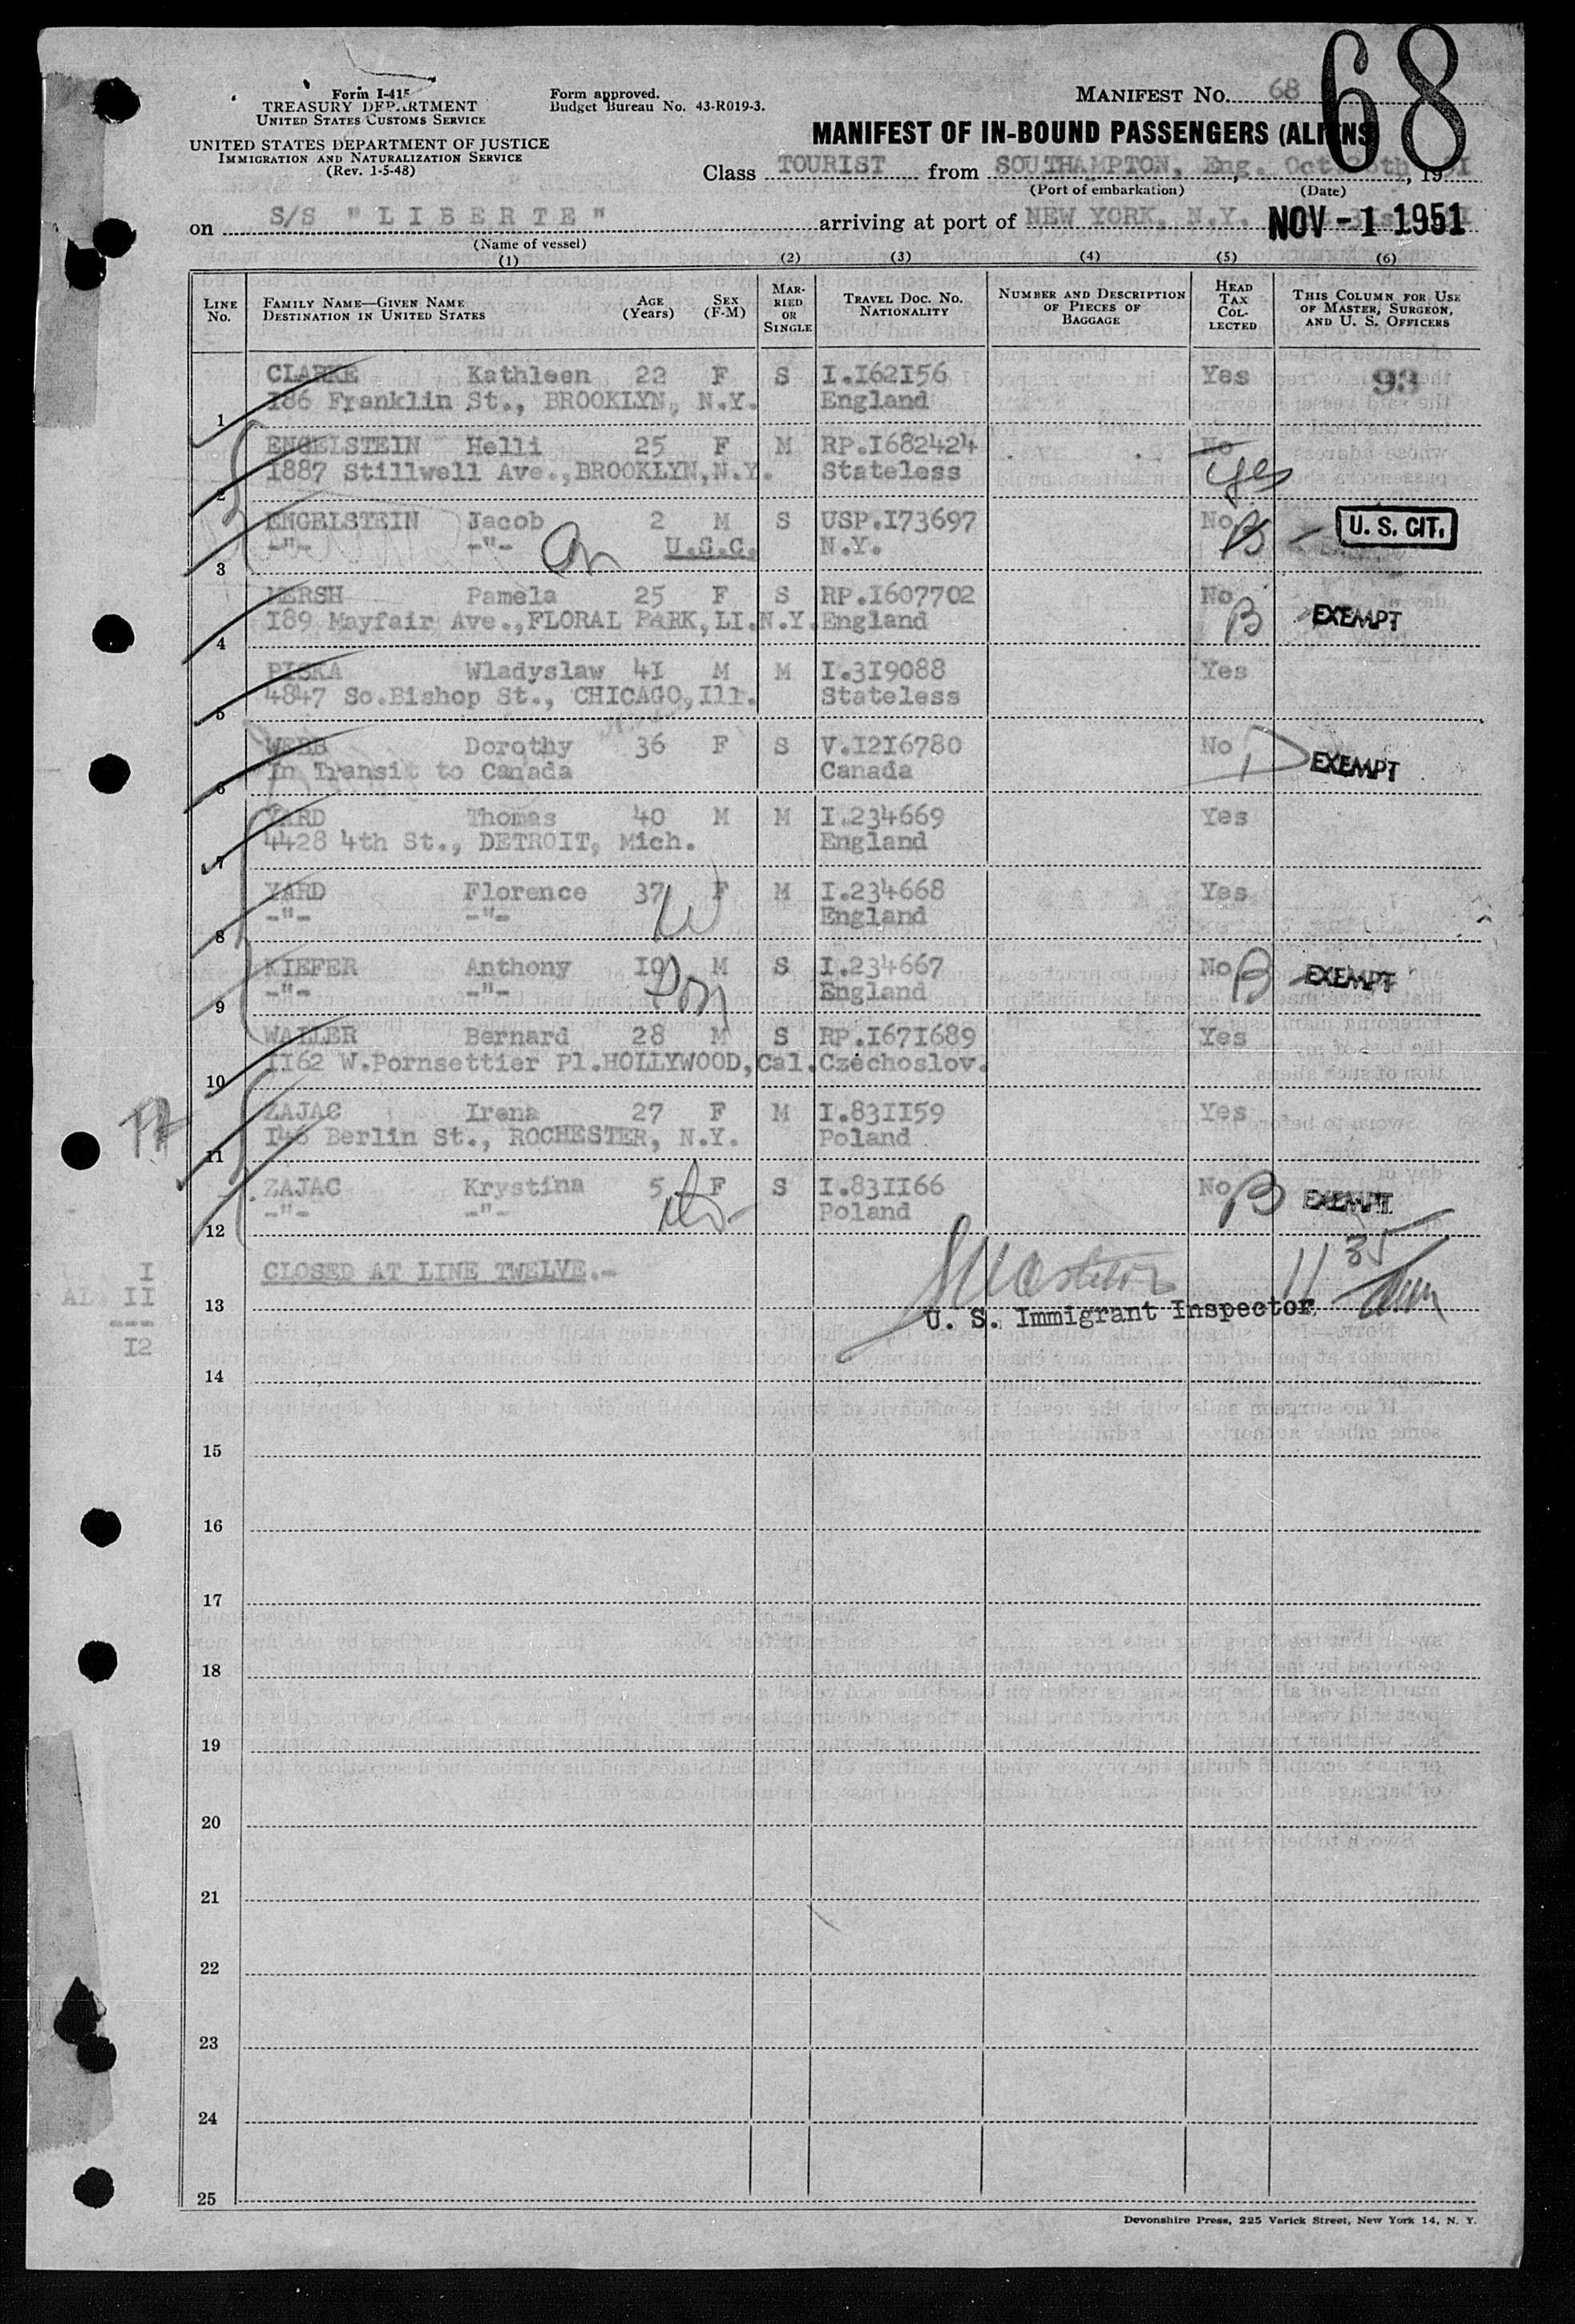 68
Form I-415
TREASURY DEPARTMENT
UNITED STATES CUSTOMS SERVICE
UNITED STATES DEPARTMENT OF JUSTICE
IMMIGRATION AND NATURALIZATION SERVICE
(Rev. 1-5-48)
Form approved.
Budget Bureau No. 43-R019-3.
MANIFEST No. 68
MANIFEST OF IN-BOUND PASSENGERS (ALIENS)
Class TOURIST from SOUTHAMPTON, Eng. , Oct. , 19 5I
(Port of embarkation) (Date)
on S/S "LIBERTE" arriving at port of NEW YORK, N.Y. NOV - 1 1951
(Name of vessel)
(1) (2) (3) (4) (5) (6)
LINE No. FAMILY NAME—GIVEN NAME DESTINATION IN UNITED STATES AGE (Years) SEX (F-M) MARRIED OR SINGLE TRAVEL DOC. NO. NATIONALITY NUMBER AND DESCRIPTION OF PIECES OF BAGGAGE HEAD TAX COLLECTED THIS COLUMN FOR USE OF MASTER, SURGEON, AND U. S. OFFICERS
CLARKE Kathleen 22 F S I.I62I56 Yes 93
1 I86 Franklin St., BROOKLYN, N.Y. England
ENGELSTEIN Helli 25 F M RP.I682424 No
2 I887 Stillwell Ave.,BROOKLYN,N.Y. Stateless Yes
ENGELSTEIN Jacob 2 M S USP.I73697 No B U. S. CIT.
3 -"- -"- U.S.C. N.Y.
HERSH Pamela 25 F S RP.I607702 No
4 I89 Mayfair Ave.,FLORAL PARK,LI.N.Y. England B EXEMPT
PISKA Wladyslaw 4I M M I.3I9088 Yes
5 4847 So.Bishop St., CHICAGO,Ill. Stateless
WEBB Dorothy 36 F S V.I2I6780 No
6 In Transit to Canada Canada D EXEMPT
YARD Thomas 40 M M I.234669 Yes
7 4428 4th St., DETROIT, Mich. England
YARD Florence 37 F M I.234668 Yes
8 -"- -"- W England
KIEFER Anthony I0 M S I.234667 No B EXEMPT
9 -"- -"- Son England
WALLER Bernard 28 M S RP.I67I689 Yes
10 II62 W.Pornsettier Pl.HOLLYWOOD,Cal. Czechoslov.
ZAJAC Irena 27 F M I.83II59 Yes
11 I48 Berlin St., ROCHESTER, N.Y. Poland
ZAJAC Krystina 5 F S I.83II66 No B EXEMPT
12 -"- -"- Poland
I
AL. II
---
I2
CLOSED AT LINE TWELVE.-
11 35
13 U. S. Immigrant Inspector
14
15
16
17
18
19
20
21
22
23
24
25
Devonshire Press, 225 Varick Street, New York 14, N. Y.